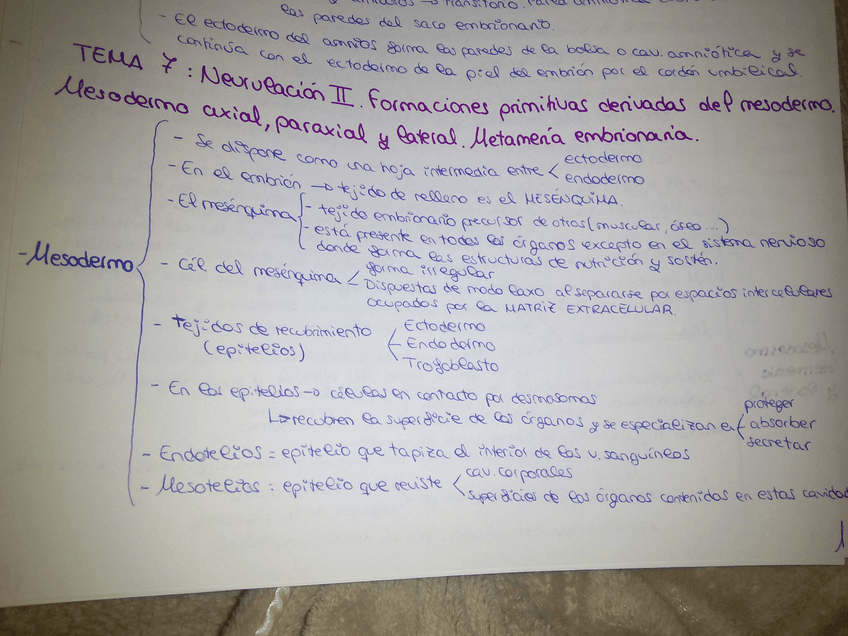 → transitorio. Pared
las paredes del saco embrionario.
- El ectodermo del amnios forma las paredes de la bolsa o cav. amniótica y se
continúa con el ectodermo de la piel del embrión por el cordón umbilical.
TEMA 7: Neurulación II. Formaciones primitivas derivadas del mesodermo.
Mesodermo axial, paraxial y lateral. Metamería embrionaria.
- Mesodermo
- Se dispone como una hoja intermedia entre < ectodermo
endodermo
- En el embrión → tejido de relleno es el MESÉNQUIMA.
- El mesénquima - tejido embrionario precursor de otros (muscular, óseo...)
- está presente en todos los órganos excepto en el sistema nervioso
donde forma las estructuras de nutrición y sostén.
- Cél del mesénquima < forma irregular
Dispuestas de modo laxo al separarse por espacios intercelulares
ocupados por la MATRIZ EXTRACELULAR.
- Tejidos de recubrimiento
(epitelios)
Ectodermo
Endodermo
Trofoblasto
- En los epitelios → células en contacto por desmosomas
↳ recubren la superficie de los órganos y se especializan en
proteger
absorber
secretar
- Endotelios = epitelio que tapiza el interior de los v. sanguíneos
- Mesotelios : epitelio que reviste < cav. corporales
superficies de los órganos contenidos en estas cavidad
1